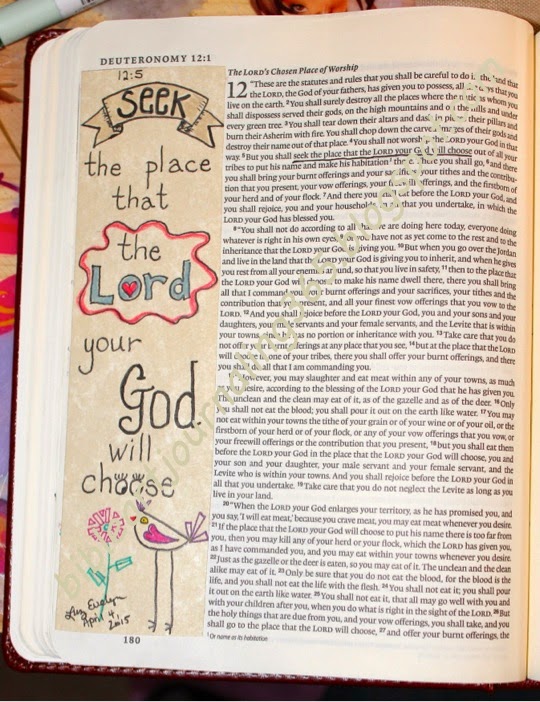 DEUTERONOMY 12:1
12:5
SEEK
the place
that
the
Lord
your
God
will
choose
Luz Evelyn
April 4,
2015
180
The LORD's Chosen Place of Worship
12 "These are the statutes and rules that you shall be careful to do in the land that
the LORD, the God of your fathers, has given you to possess, all the days that you
live on the earth. 2You shall surely destroy all the places where the nations whom you
shall dispossess served their gods, on the high mountains and on the hills and under
every green tree. 3You shall tear down their altars and dash in pieces their pillars and
burn their Asherim with fire. You shall chop down the carved images of their gods and
destroy their name out of that place. 4You shall not worship the LORD your God in that
way. 5But you shall seek the place that the LORD your God will choose out of all your
tribes to put his name and make his habitation1 there. There you shall go, 6and there
you shall bring your burnt offerings and your sacrifices, your tithes and the contribu-
tion that you present, your vow offerings, your freewill offerings, and the firstborn of
your herd and of your flock. 7And there you shall eat before the LORD your God, and
you shall rejoice, you and your households, in all that you undertake, in which the
LORD your God has blessed you.
8"You shall not do according to all that we are doing here today, everyone doing
whatever is right in his own eyes, 9for you have not as yet come to the rest and to the
inheritance that the LORD your God is giving you. 10But when you go over the Jordan
and live in the land that the LORD your God is giving you to inherit, and when he gives
you rest from all your enemies around, so that you live in safety, 11then to the place that
the LORD your God will choose, to make his name dwell there, there you shall bring
all that I command you: your burnt offerings and your sacrifices, your tithes and the
contribution that you present, and all your finest vow offerings that you vow to the
LORD. 12And you shall rejoice before the LORD your God, you and your sons and your
daughters, your male servants and your female servants, and the Levite that is within
your towns, since he has no portion or inheritance with you. 13Take care that you do
not offer your burnt offerings at any place that you see, 14but at the place that the LORD
will choose in one of your tribes, there you shall offer your burnt offerings, and there
you shall do all that I am commanding you.
15"However, you may slaughter and eat meat within any of your towns, as much
as you desire, according to the blessing of the LORD your God that he has given you.
The unclean and the clean may eat of it, as of the gazelle and as of the deer. 16Only
you shall not eat the blood; you shall pour it out on the earth like water. 17You may
not eat within your towns the tithe of your grain or of your wine or of your oil, or the
firstborn of your herd or of your flock, or any of your vow offerings that you vow, or
your freewill offerings or the contribution that you present, 18but you shall eat them
before the LORD your God in the place that the LORD your God will choose, you and
your son and your daughter, your male servant and your female servant, and the
Levite who is within your towns. And you shall rejoice before the LORD your God in
all that you undertake. 19Take care that you do not neglect the Levite as long as you
live in your land.
20"When the LORD your God enlarges your territory, as he has promised you, and
you say, 'I will eat meat,' because you crave meat, you may eat meat whenever you desire.
21If the place that the LORD your God will choose to put his name there is too far from
you, then you may kill any of your herd or your flock, which the LORD has given you,
as I have commanded you, and you may eat within your towns whenever you desire.
22Just as the gazelle or the deer is eaten, so you may eat of it. The unclean and the clean
alike may eat of it. 23Only be sure that you do not eat the blood, for the blood is the
life, and you shall not eat the life with the flesh. 24You shall not eat it; you shall pour
it out on the earth like water. 25You shall not eat it, that all may go well with you and
with your children after you, when you do what is right in the sight of the LORD. 26But
the holy things that are due from you, and your vow offerings, you shall take, and you
shall go to the place that the LORD will choose, 27and offer your burnt offerings, the
1 Or name as its habitation